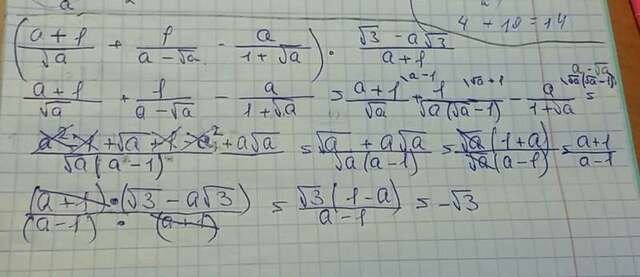 a 4 + 10 = 14
( (a+1)/√a + 1/(a-√a) - a/(1+√a) ) · (√3 - a√3)/(a+1)
(a+1)/√a + 1/(a-√a) - a/(1+√a) = (a+1)/√a \a-1 + 1/(√a(√a-1)) \√a+1 - a/(1+√a) \a-√a √a(√a-1) =
(a² - 1 + √a + 1 - a² + a√a)/(√a(a-1)) = (√a + a√a)/(√a(a-1)) = (√a(1+a))/(√a(a-1)) = (a+1)/(a-1)
((a+1)·(√3 - a√3))/((a-1)·(a+1)) = (√3(1-a))/(a-1) = -√3